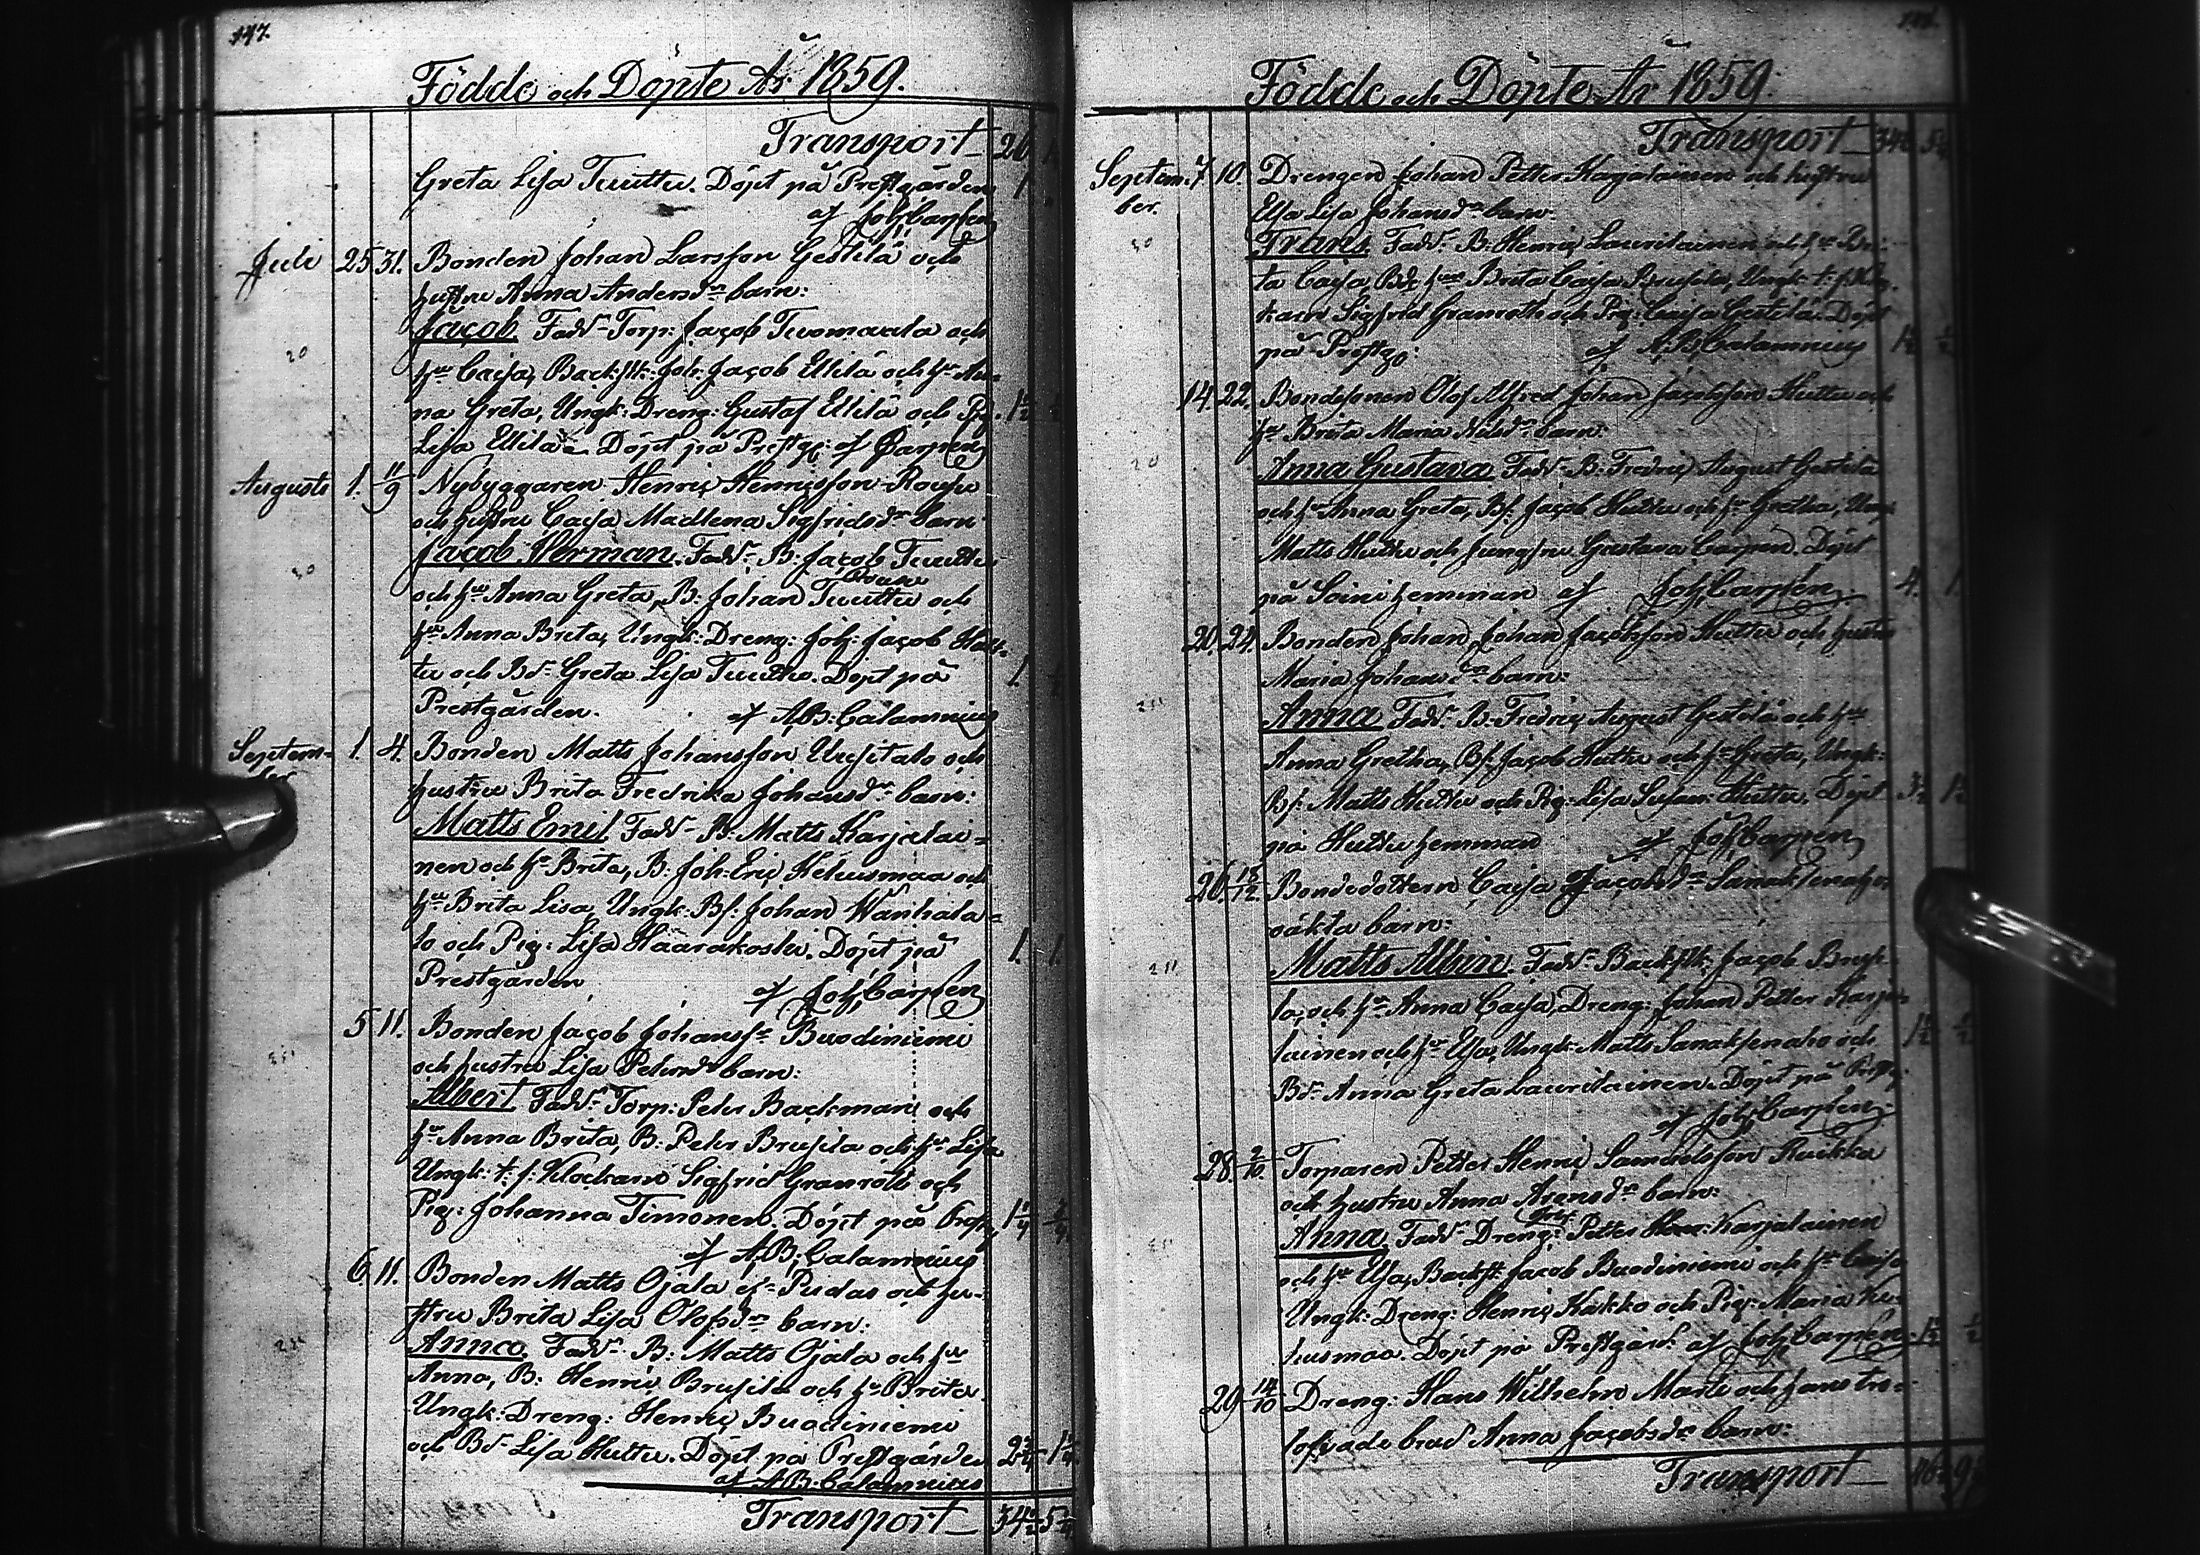 147.
Födde och Döpte År 1859.
Transport 20
Greta Lisa Tuuttu. Döpt på Prestgården 1
af Joh Carpen
Juli 25 31. Bonden Johan Larsson Gestilä och
hustru Anna Andersdr barn:
Jacob. Fadd. Torp: Jacob Tuomaala och
hu Caisa, Backstk: Joh. Jacob Ellilä och hu An-
na Greta, Ungk: Dreng: Gustaf Ellilä och Pig. 1½
Lisa Ellilä. Döpt på Prestg: af Carpen
Augusti 1. 11/9 Nybyggaren Henric Henricsson Rousu
och hustru Caisa Madlena Sigfridsdr barn
Jacob Herman. Fadd. B. Jacob Tuuttu
och hu Anna Greta, B. Johan Tuuttu och
hu Anna Brita, Ungk: Dreng: Joh: Jacob Hut-
tu och Bd. Greta Lisa Tuuttu. Döpt på 1.
Prestgården. af A.B. Calamnius
Septem- 1. 4. Bonden Matts Johansson Uusitalo och
hustru Brita Fredrika Johansdr barn:
Matts Emil Fadd. B. Matts Karjalai-
nen och hu Brita, B. Joh. Eric Keliusmaa och
hu Brita Lisa, Ungk: Bs: Johan Wanhata-
lo och Pig: Lisa Haarakoski. Döpt på 1. 1.
Prestgården af Joh Carpen
5 11. Bonden Jacob Johanss. Buodiniemi
och hustru Lisa Petersdr barn:
Albert Fadd. Torp: Peter Backman och
hu Anna Brita, B. Peter Brusila och hu Lisa
Ungk: t. f. Klockaren Sigfrid Granroth och
Pig: Johanna Timonen. Döpt på Prestg
af A.B. Calamnius
6. 11. Bonden Matts Ojala el. Pudas och hu-
stru Brita Lisa Olofsdr barn:
Anna. Fadd. B. Matts Ojala och hu
Anna, B. Henric Brusila och hu Brita
Ungk: Dreng: Henric Buodiniemi
och Bd. Lisa Huttu. Döpt på Prestgården
af A.B. Calamnius
Transport 34½ 5
Födde och Döpte År 1859.
Transport 34½ 5
Septem- 7. 10. Drengen Johan Petter Karjalainen och hustru
ber. Elsa Lisa Johansdr barn:
Frans. Fadd. B. Henric Lauritainen och hu Bri-
ta Caisa, Bd. hu Brita Caisa Brusila, Ungk: t. f. Kloc-
karen Sigfrid Granroth och Pig: Caisa Gestilä. Döpt
på Prestg: af A.B. Calamnius 1½ ½
14. 22. Bondesonen Olof Alfred Johan Jacobsson Huttu och
hu Brita Maria Nilsdr barn:
Anna Gustava Fadd. B. Fredric August Gestilä
och hu Anna Greta, Bs. Jacob Huttu och hu Gretha, Ungk:
Matts Huttu och Jungfru Gustava Carpen. Döpt
på Soini hemman af Joh Carpen 4. 1
20. 24. Bonden Johan Johan Jacobsson Huttu och hustru
Maria Johansdr barn:
Anna Fadd. B. Fredric August Gestilä och hu
Anna Gretha, Bs. Jacob Huttu och hu Greta, Ungk:
Bs: Matts Huttu och Pig: Lisa Huttu. Döpt 3½ 1½
på Huttu hemman af Joh Carpen
26. 18/12. Bondedottren Caisa Jacobsdr Sanaksenaho
oäkta barn:
Matts Albin. Fadd. Backstk: Jacob Brusi-
la, och hu Anna Caisa, Dreng: Johan Petter Karja-
lainen och hu Elsa, Ungk: Matts Sanaksenaho och 1½ ½
Bd. Anna Greta Lauritainen. Döpt på Prestg:
af Joh Carpen
28. 2/10. Torparen Petter Henric Samuelsson Ruikka
och hustru Anna Aronsdr barn:
Anna. Fadd. Dreng: Petter Karjalainen
och hu Elsa, Backst. Jacob Buodiniemi och hu Caisa
Ungk: Dreng: Henric Kakko och Pig: Maria Ke-
liusmaa. Döpt på Prestgård. af Joh Carpen 1½ ½
29. 14/10 Dreng: Hans Wilhelm Marti och hans tro-
lofvade brud Anna Jacobsdr barn:
Transport